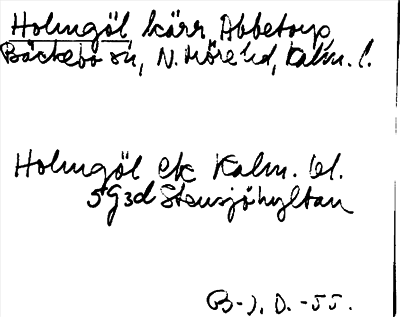 Holmgöl kärr, Abbetorp,
Bäckebo sn, N. Möre hd, Kalm. l.
Holmgöl ek Kalm. bl.
5G3d Stensjöhyltan
B-J. D. -55.